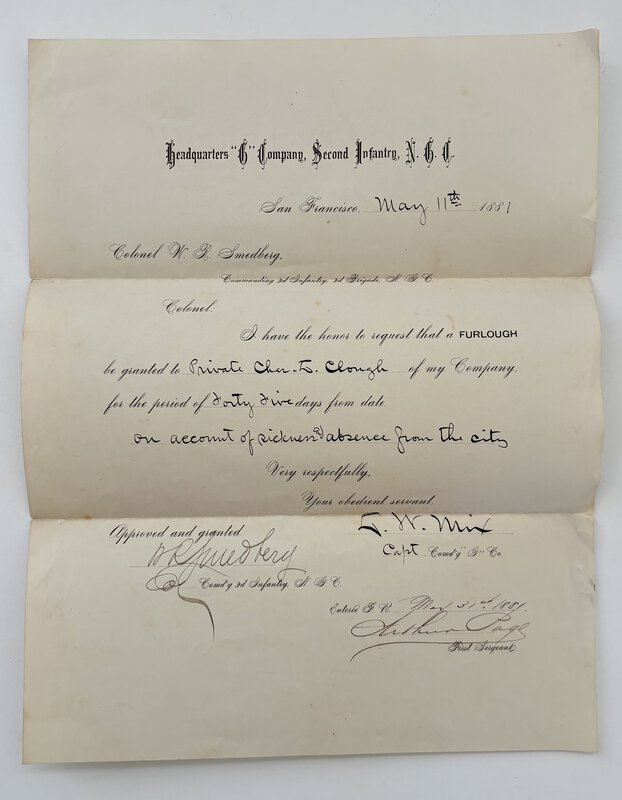 Headquarters "G" Company, Second Infantry, N. G. C.
San Francisco, May 11th 1881
Colonel W. R. Smedberg,
Commanding 2d Infantry, 2d Brigade, N. G. C.
Colonel:
I have the honor to request that a FURLOUGH
be granted to Private Chas. L. Clough of my Company,
for the period of Forty Five days from date
on account of sickness & absence from the city
Very respectfully,
Your obedient servant,
L. W. Mix
Capt Comd'g "G" Co.
Approved and granted
W R Smedberg
Col Comd'g 2d Infantry, N. G. C.
Entered 31st 1881.
Arthur Page
First Sergeant